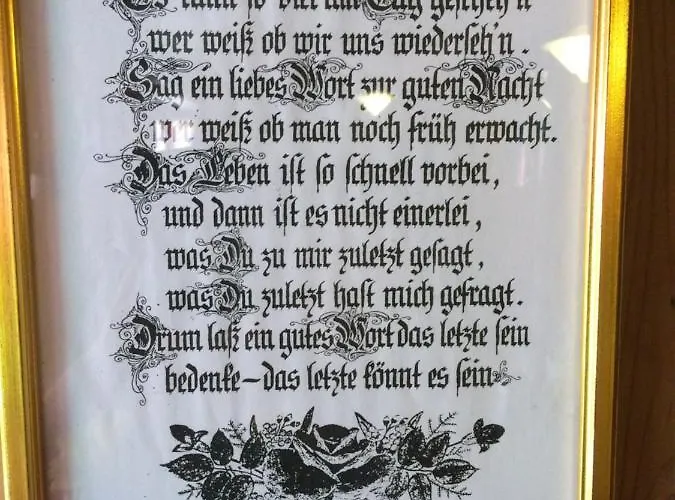 Es kann so viel am Tag gescheh'n
wer weiß ob wir uns wiederseh'n.
Sag ein liebes Wort zur guten Nacht
wer weiß ob man noch früh erwacht.
Das Leben ist so schnell vorbei,
und dann ist es nicht einerlei,
was Du zu mir zuletzt gesagt,
was Du zuletzt hast mich gefragt.
Drum laß ein gutes Wort das letzte sein
bedenke – das letzte könnt es sein